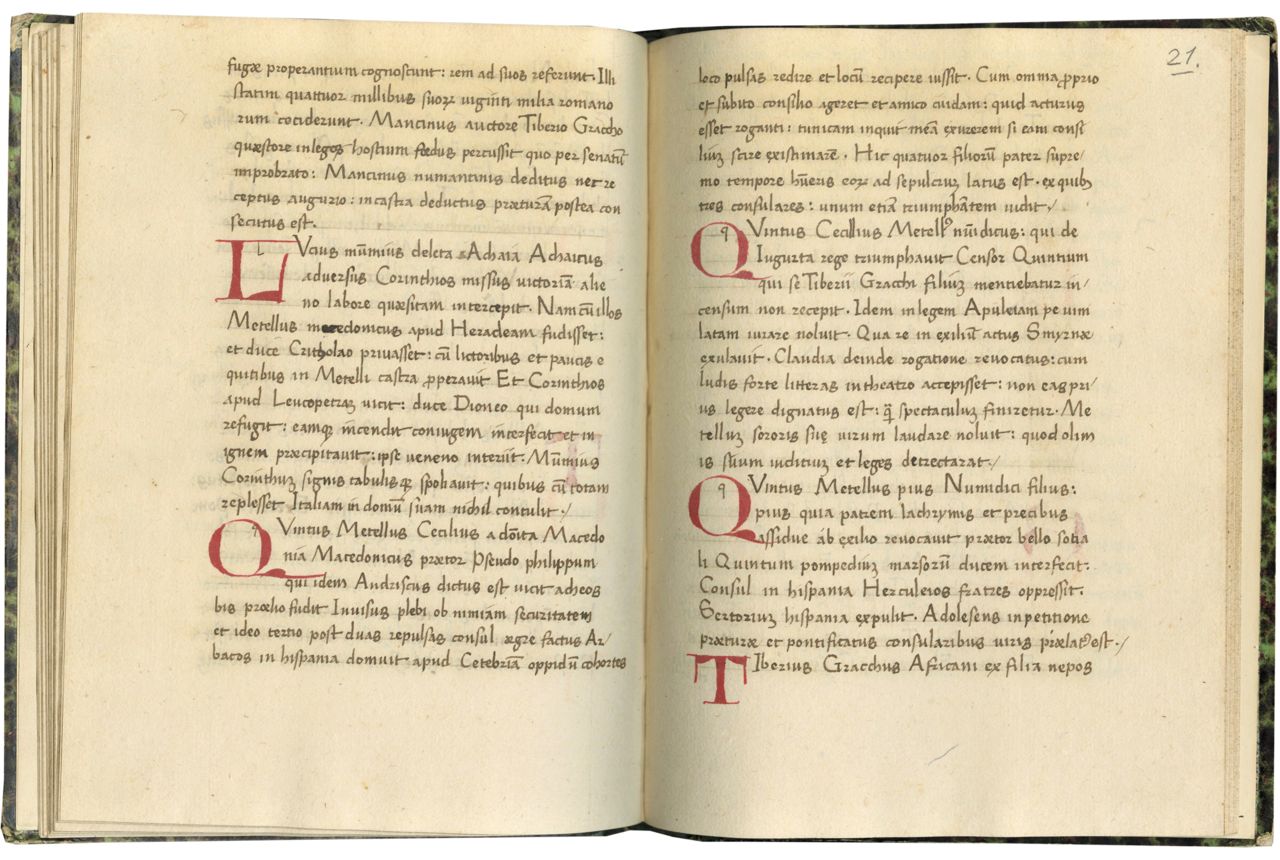 fugæ properantium cognoscunt: rem ad suos referunt. Illi
statim quattuor millibus suoꝝ viginti milia romano
rum cociderunt. Mancinus auctore Tiberio Graccho
quæstore in leges hostium fœdus percussit quo per senatū
improbrato: Mancinus numantinis deditus nec re
ceptus augurio: in castra deductus præturā postea con
secutus est.
LVcius mūmius deleta Achaia Achaicus
adversus Corinthios missus victoriā alie
no labore quæsitam intercepit. Nam cū illos
Metellus macedonicus apud Heracleam fudisset:
et duce Critholao privasset: cū lictoribus et paucis e
quitibus in Metelli castra ꝓperavit Et Corinthios
apud Leucopetraꝫ vicit: duce Dioneo qui domum
refugit: eamqꝫ incendit coniugem interfecit et in
ignem præcipitavit: ipse veneno interiit. Mūmius
Corinthuꝫ signis tabulisqꝫ spoliavit: quibus cū totam
replesset Italiam in domū suam nichil contulit./
QVintus Metellus Cecilius a domita Macedo
nia Macedonicus prætor Pseudo philippum
qui idem Andriscus dictus est vicit acheos
bis prœlio fudit Invisus plebi ob nimiam securitatem
et ideo tertio post duas repulsas consul ægre factus Ar/
bacos in hispania domuit apud Cetebriā oppidū cohortes
21.
loco pulsas redire et locū recipere iussit. Cum omnia ꝓprio
et subito consilio ageret et amico cuidam: quid acturus
esset roganti: tunicam inquit meā exurerem si eam consi
liuꝫ scire existimarē. Hic quatuor filiorū pater supre/
mo tempore hūeris eoꝝ ad sepulcruꝫ latus est. ex quibꝫ
tres consulares: unum etiā triumphātem vidit./
QVintus Cecillius Metellꝰ nūidicus: qui de
Iugurta rege triumphavit Censor Quintium
qui se Tiberii Gracchi filiuꝫ mentiebatur in/
censum non recepit. Idem in legem Apuleiam pe vim
latam iurare noluit. Qua re in exiliū actus Smyrnæ
exulavit. Claudia deinde rogatione revocatus: cum
ludis forte litteras in theatro accepisset: non eas pri/
us legere dignatus est: qꝫ spectaculuꝫ finiretur. Me
telluꝫ sororis suę virum laudare noluit: quod olim
is suum iudiciuꝫ et leges detrectarat./
QVintus Metellus pius Numidici filius:
pius quia patrem lachrymis et precibus
assidue ab exilio revocavit prætor bello socia
li Quintum pompediuꝫ marsorū ducem interfecit.
Consul in hispania Herculeios fratres oppressit.
Sertorium hispania expulit. Adolesens in petitione
præturæ et pontificatus consularibus viris prælatꝰ est./
TIberius Gracchus Africani ex filia nepos